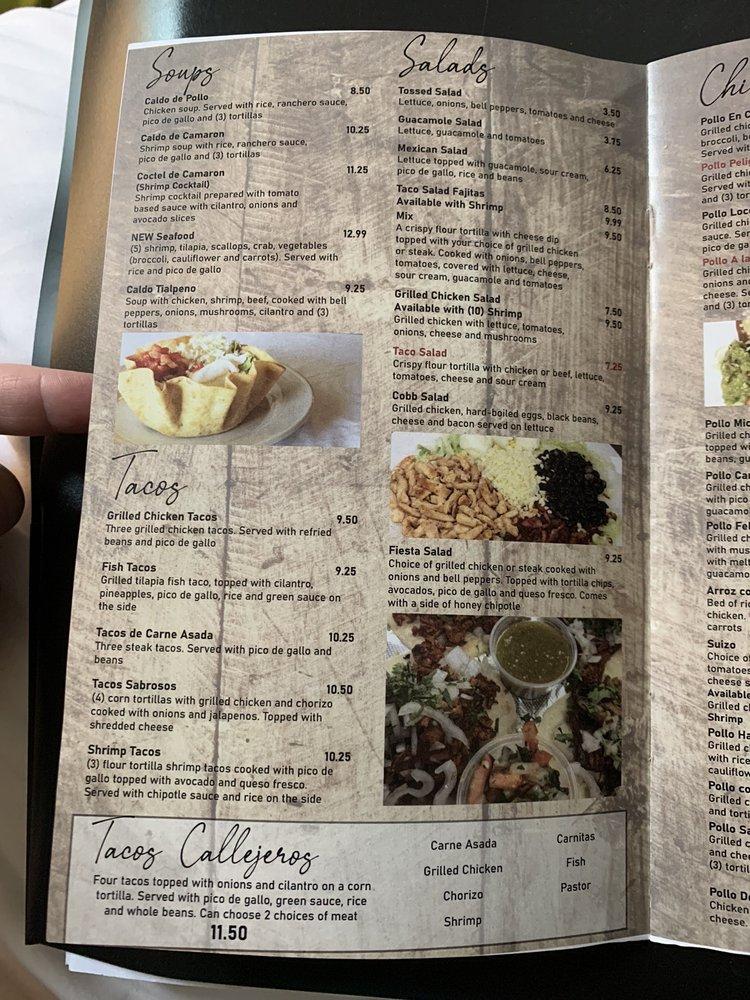 Soups
Caldo de Pollo 8.50
Chicken soup. Served with rice, ranchero sauce,
pico de gallo and (3) tortillas
Caldo de Camaron 10.25
Shrimp soup with rice, ranchero sauce,
pico de gallo and (3) tortillas
Coctel de Camaron 11.25
(Shrimp Cocktail)
Shrimp cocktail prepared with tomato
based sauce with cilantro, onions and
avocado slices
NEW Seafood 12.99
(5) shrimp, tilapia, scallops, crab, vegetables
(broccoli, cauliflower and carrots). Served with
rice and pico de gallo
Caldo Tialpeno 9.25
Soup with chicken, shrimp, beef, cooked with bell
peppers, onions, mushrooms, cilantro and (3)
tortillas
Tacos
Grilled Chicken Tacos 9.50
Three grilled chicken tacos. Served with refried
beans and pico de gallo
Fish Tacos 9.25
Grilled tilapia fish taco, topped with cilantro,
pineapples, pico de gallo, rice and green sauce on
the side
Tacos de Carne Asada 10.25
Three steak tacos. Served with pico de gallo and
beans
Tacos Sabrosos 10.50
(4) corn tortillas with grilled chicken and chorizo
cooked with onions and jalapenos. Topped with
shredded cheese
Shrimp Tacos 10.25
(3) flour tortilla shrimp tacos cooked with pico de
gallo topped with avocado and queso fresco.
Served with chipotle sauce and rice on the side
Salads
Tossed Salad 3.50
Lettuce, onions, bell peppers, tomatoes and cheese
Guacamole Salad 3.75
Lettuce, guacamole and tomatoes
Mexican Salad 6.25
Lettuce topped with guacamole, sour cream,
pico de gallo, rice and beans
Taco Salad Fajitas 8.50
Available with Shrimp 9.99
Mix 9.50
A crispy flour tortilla with cheese dip
topped with your choice of grilled chicken
or steak. Cooked with onions, bell peppers,
tomatoes, covered with lettuce, cheese,
sour cream, guacamole and tomatoes
Grilled Chicken Salad 7.50
Available with (10) Shrimp 9.50
Grilled chicken with lettuce, tomatoes,
onions, cheese and mushrooms
Taco Salad 7.25
Crispy flour tortilla with chicken or beef, lettuce,
tomatoes, cheese and sour cream
Cobb Salad 9.25
Grilled chicken, hard-boiled eggs, black beans,
cheese and bacon served on lettuce
Fiesta Salad 9.25
Choice of grilled chicken or steak cooked with
onions and bell peppers. Topped with tortilla chips,
avocados, pico de gallo and queso fresco. Comes
with a side of honey chipotle
Tacos Callejeros
Four tacos topped with onions and cilantro on a corn
tortilla. Served with pico de gallo, green sauce, rice
and whole beans. Can choose 2 choices of meat
11.50
Carne Asada
Grilled Chicken
Chorizo
Shrimp
Carnitas
Fish
Pastor
Pollo En
Grilled
broccoli,
Served
Grilled
Served
and (3)
Pollo
Grilled
sauce.
pico de
Pollo A
Grilled
onions
cheese.
and (3)
Pollo
Grilled
topped
beans,
Pollo
Grilled
with pico
Pollo
Grilled
with
with
Arroz
Bed of
chicken.
carrots
Suizo
Choice
cheese
Grilled
Shrimp
Pollo
Grilled
with
Pollo
Grilled
and
Pollo
Grilled
and
(3)
Pollo
Chicken
cheese.